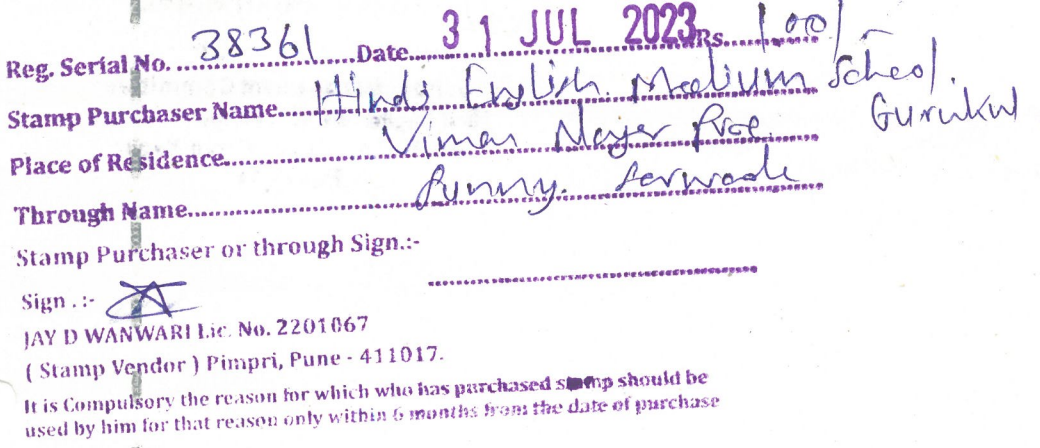 Reg. Serial No. 38361 Date 31 JUL 2023 Rs. 100/-
Stamp Purchaser Name Hinds English Medium School. Gurukul
Place of Residence Viman
Through Name Sunny.
Stamp Purchaser or through Sign.:-
Sign . :-
JAY D WANWARI Lic. No. 2201067
( Stamp Vendor ) Pimpri, Pune - 411017.
It is Compulsory the reason for which who has purchased stamp should be
used by him for that reason only within 6 months from the date of purchase